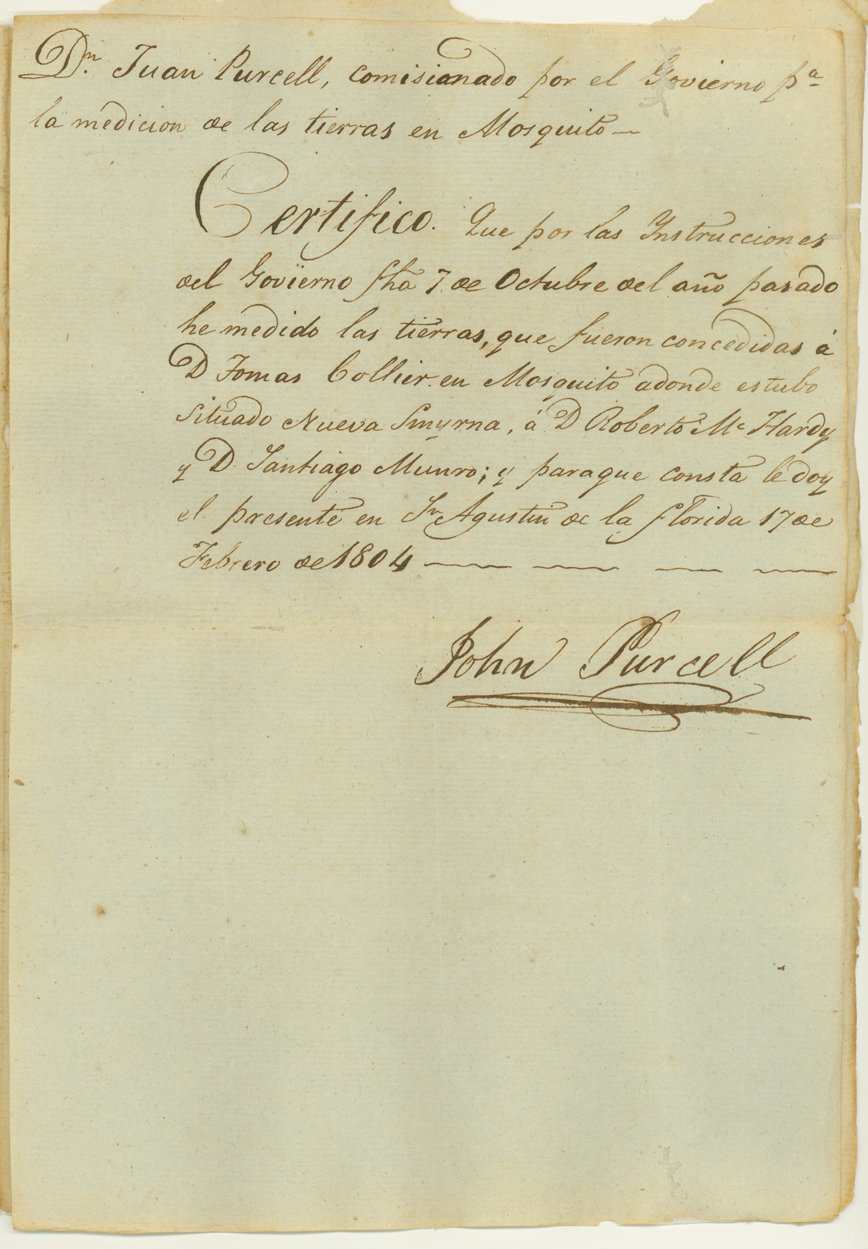 Dn. Juan Purcell, comisionado por el Govierno pa
la medicion de las tierras en Mosquito—
Certifico. Que por las Instrucciones
del Govierno fha 7 de Octubre del año pasado
he medido las tierras, que fueron concedidas á
D Tomas Collier en Mosquito adonde estubo
situado Nueva Smyrna, á D Roberto Mc Hardy
y D Santiago Munro; y paraque consta le doy
el presente en Sn Agustin de la florida 17 de
Febrero de 1804 — — — —
John Purcell